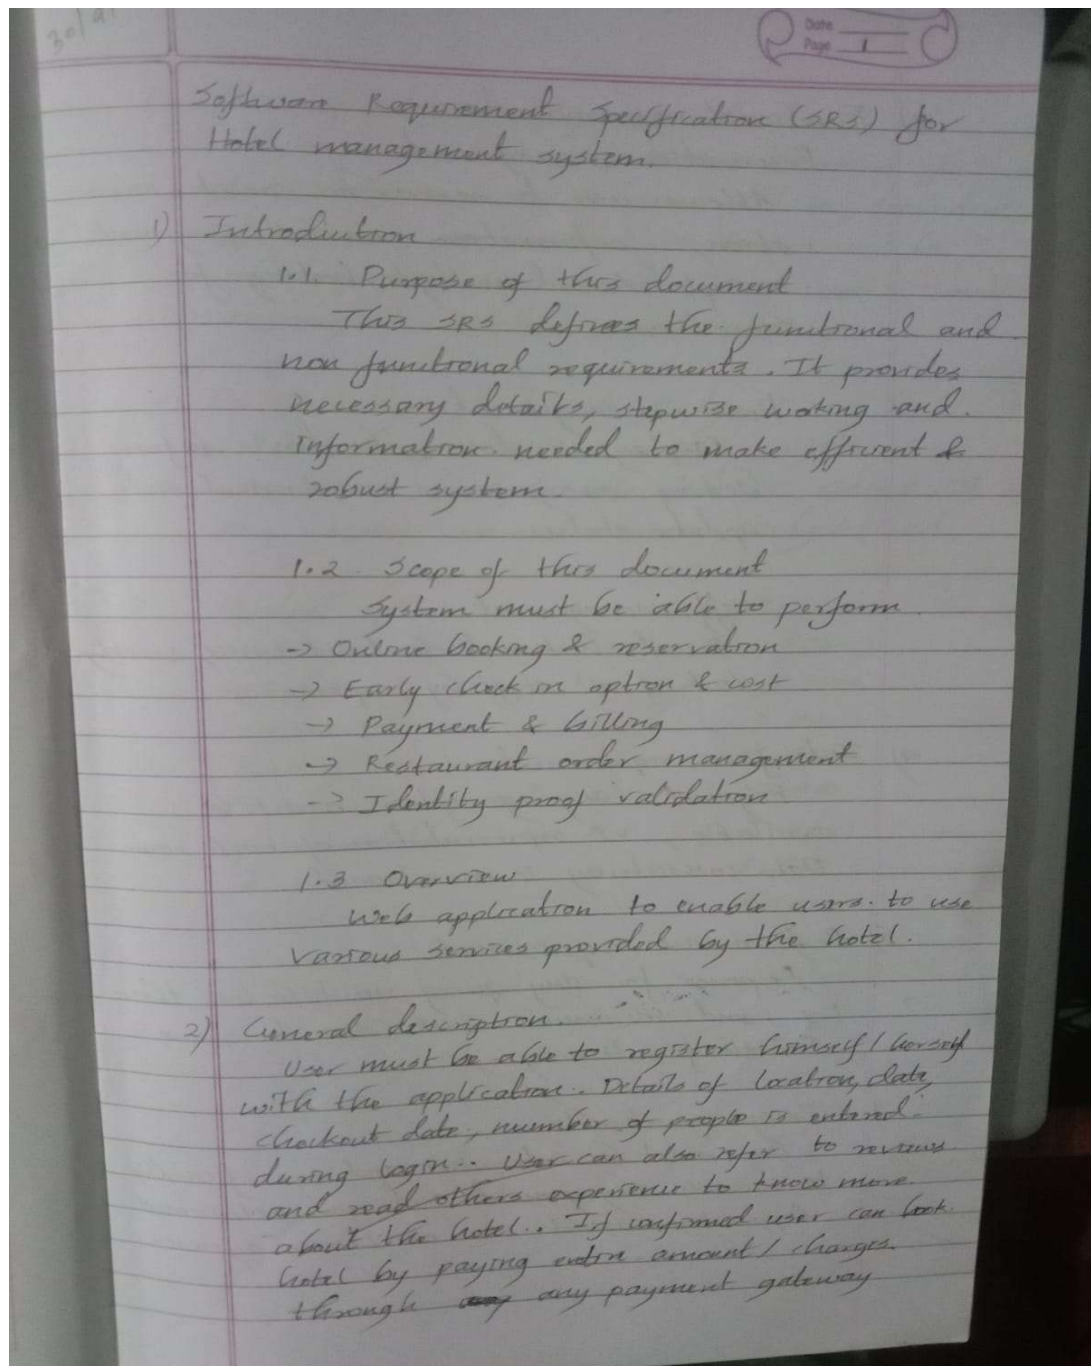 Date
Page 1
Software Requirement Specification (SRS) for
Hotel management system.
1) Introduction
1.1. Purpose of this document
This SRS defines the functional and
non functional requirements. It provides
necessary details, stepwise working and
information needed to make efficient &
robust system.
1.2. Scope of this document
System must be able to perform
-> Online booking & reservation
-> Early check in option & cost
-> Payment & billing
-> Restaurant order management
-> Identity proof validation
1.3 Overview
Web application to enable users to use
various services provided by the hotel.
2) General description.
User must be able to register himself/herself
with the application. Details of location, date,
checkout date, number of people is entered
during login. User can also refer to reviews
and read others experience to know more
about the hotel. If confirmed user can book
hotel by paying entire amount/charges
through any payment gateway